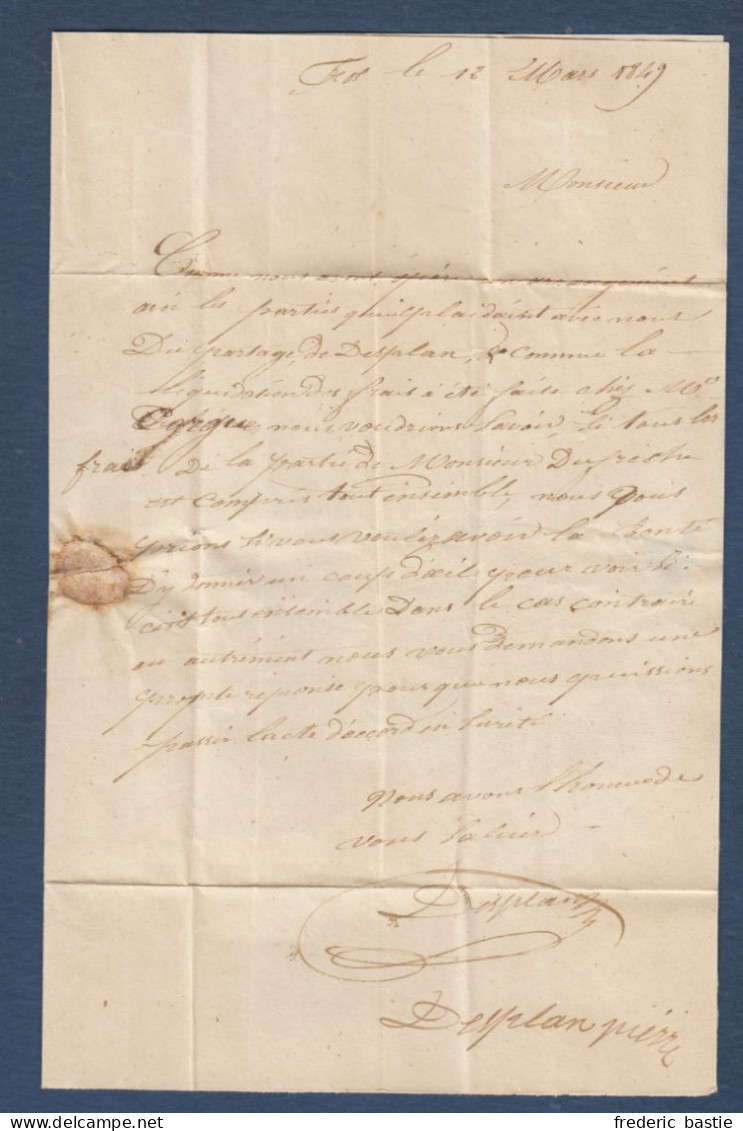 le 12 Mars 1849
Monsieur
Comme nous avons opéré un arrangement
avec les parties qui plaidoient avec nous
Du partage de Desplan, & comme la
liquidation des frais a été faite chez Me
nous voudrions savoir, si tous les
frais De la partie de Monsieur Dufreche
est compris tout ensemble, nous vous
prions si vous voulez avoir la bonté
D'y donner un coup d'œil pour voir si
c'est tout ensemble Dans le cas contraire
ou autrement nous vous demandons une
prompte réponse pour que nous puissions
passer l'acte d'accord en sureté
Nous avons l'honneur de
vous saluer
Desplan
Desplan pierre
frederic bastie